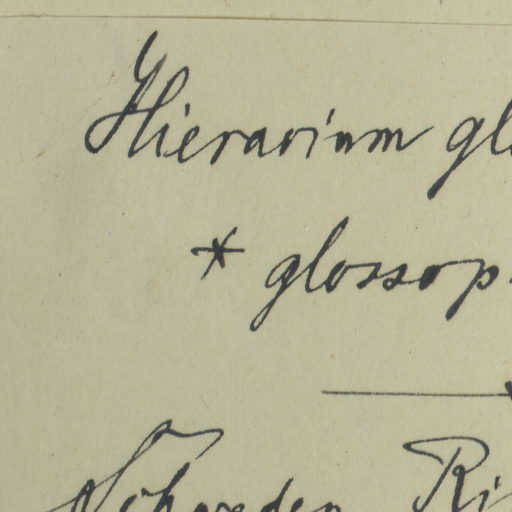 Hieracium gl
* glossop
Schweden Ri